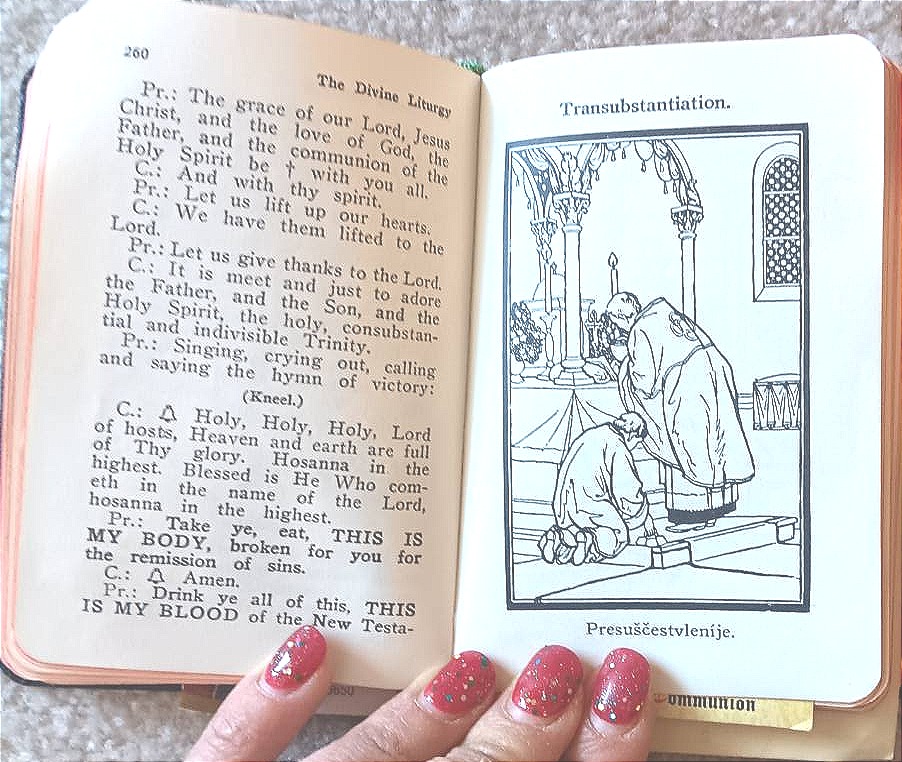 260
The Divine Liturgy
Pr.: The grace of our Lord, Jesus
Christ, and the love of God, the
Father, and the communion of the
Holy Spirit be † with you all.
C.: And with thy spirit.
Pr.: Let us lift up our hearts.
C.: We have them lifted to the
Lord.
Pr.: Let us give thanks to the Lord.
C.: It is meet and just to adore
the Father, and the Son, and the
Holy Spirit, the holy, consubstan-
tial and indivisible Trinity.
Pr.: Singing, crying out, calling
and saying the hymn of victory:
(Kneel.)
C.: Holy, Holy, Holy, Lord
of hosts, Heaven and earth are full
of Thy glory. Hosanna in the
highest. Blessed is He Who com-
eth in the name of the Lord,
hosanna in the highest.
Pr.: Take ye, eat, THIS IS
MY BODY, broken for you for
the remission of sins.
C.: Amen.
Pr.: Drink ye all of this, THIS
IS MY BLOOD of the New Testa-
Transubstantiation.
Presuščestvleníje.